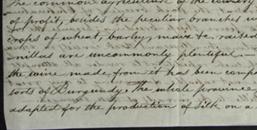 the common agriculture of the country
of profit, besides the peculiar branches
crops of wheat, barley, maize, raised
millas are uncommonly plentiful
the wine made from it has been comp
sorts of Burgundy; the whole province
adapted for the production of silk on a